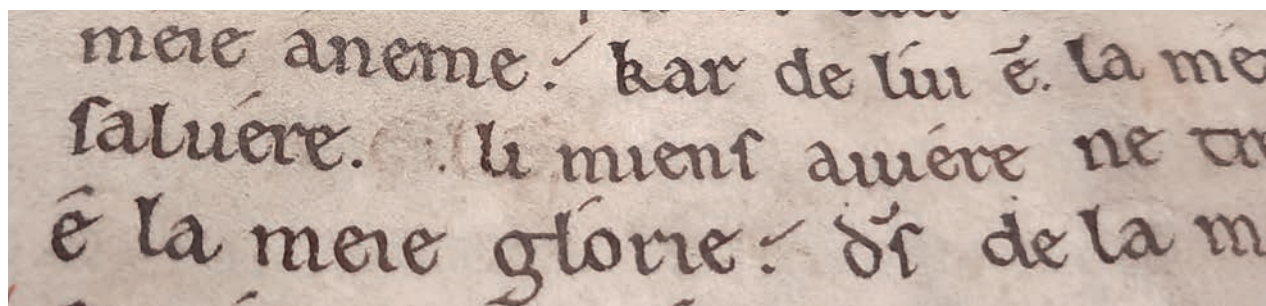 meie aneme. kar de lúi ē. la
saluére. li miens aiuére ne
ē la meie glórie. d̄s de la